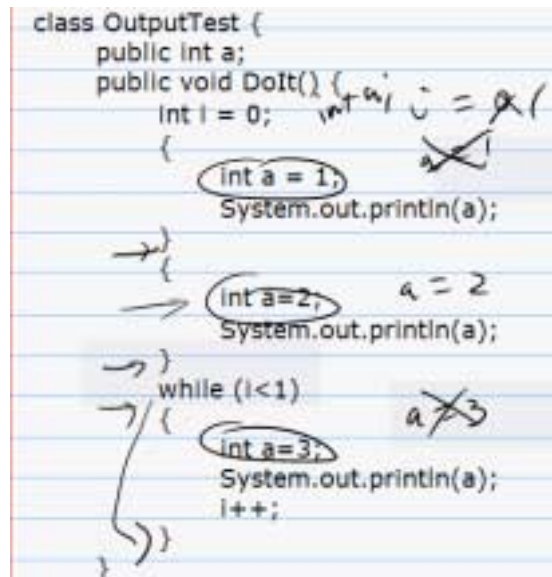 class OutputTest {
public int a;
public void DoIt() { int a;
int i = 0; i = 0 1
{ a = 1
int a = 1;
System.out.println(a);
}
{
int a=2; a = 2
System.out.println(a);
}
while (i<1)
{ a = 3
int a=3;
System.out.println(a);
i++;
}
}